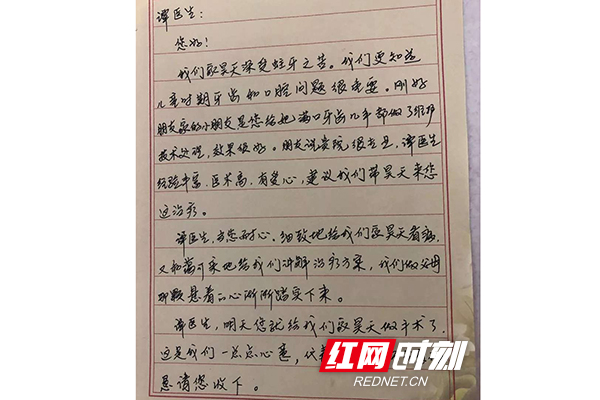 谭医生：
您好！
我们家昊天深受蛀牙之苦。我们更知道
儿童时期牙齿和口腔问题很重要。刚好
朋友家的小朋友是您给她满口牙齿几乎都做了维护
技术处理，效果很好。朋友说贵院很专业，谭医生
经验丰富，医术高，有爱心，建议我们带昊天来您
这治疗。
谭医生，当您耐心、细致地给我们家昊天看病，
又和蔼可亲地给我们讲解治疗方案，我们做父母
那颗悬着的心渐渐踏实下来。
谭医生，明天您就给我们家昊天做手术了，
这是我们一点点心意，代表
恳请您收下。
红网时刻
REDNET.CN